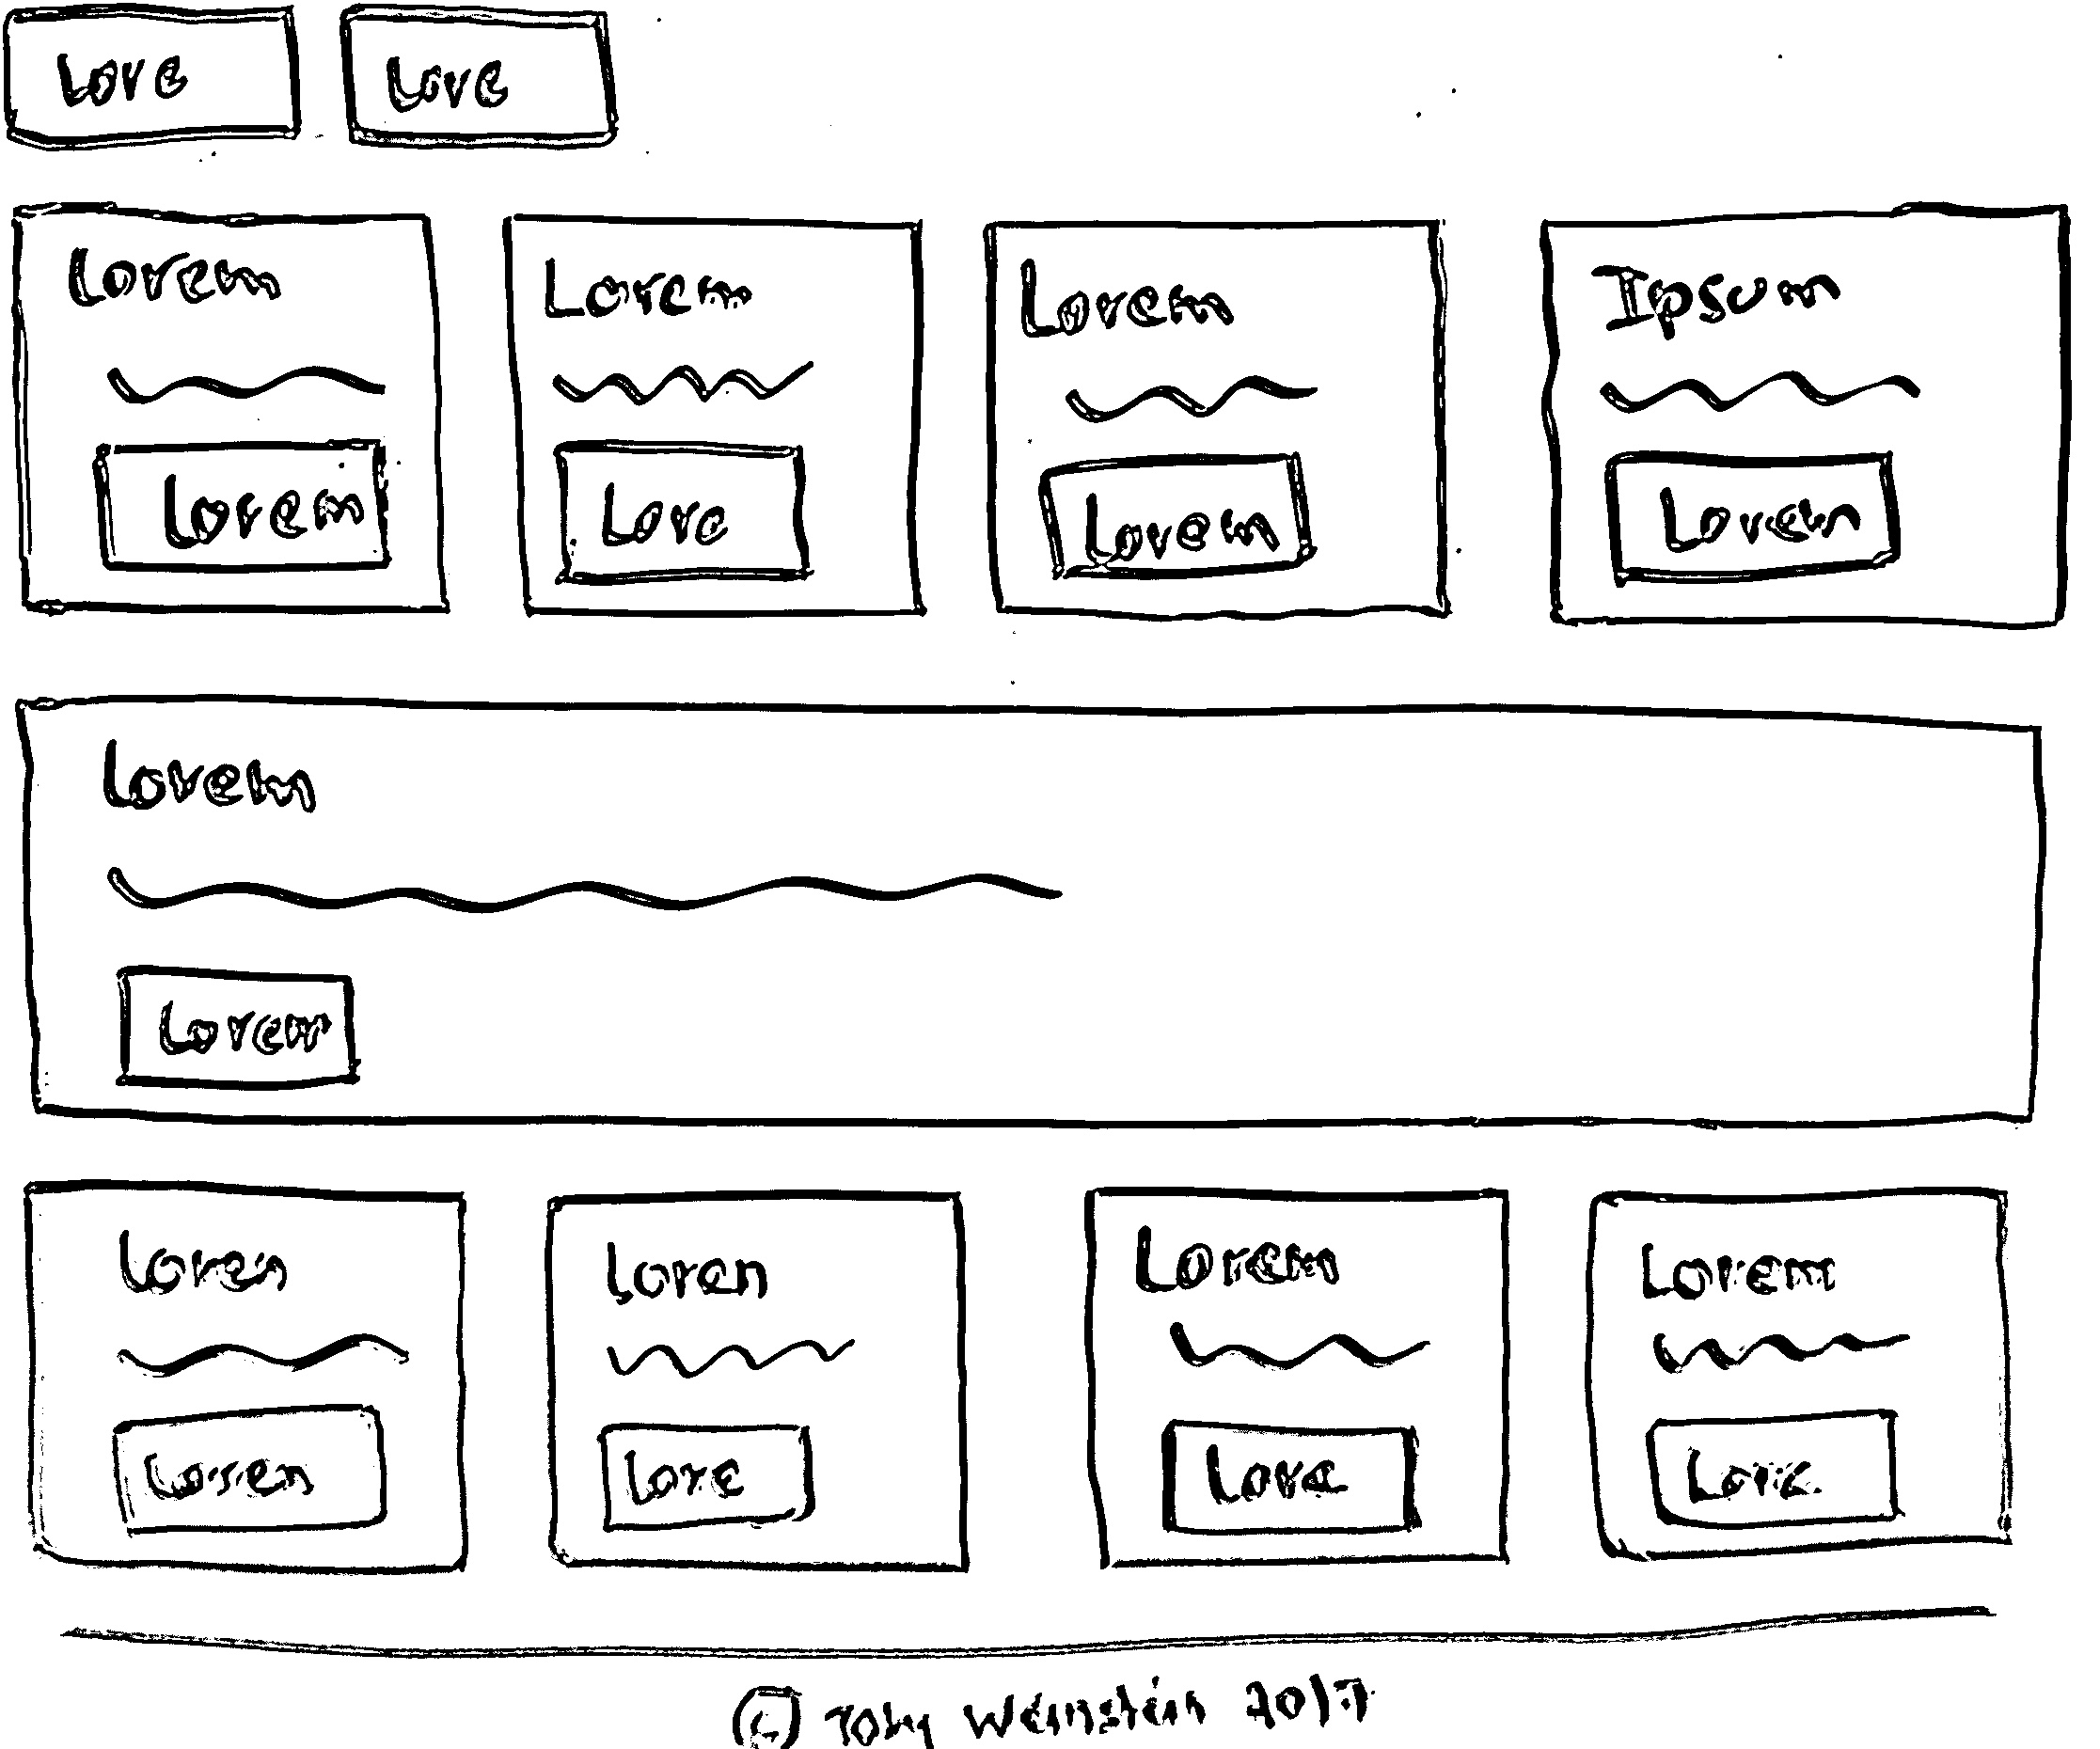 Love Love
Lorem Lorem Lorem Ipsum
Lorem Lore Lorem Lorem
Lorem
Lorem
Loren Loren Lorem Lorem
Loren Lore Lore Lore
© Toby Weinstein 2017